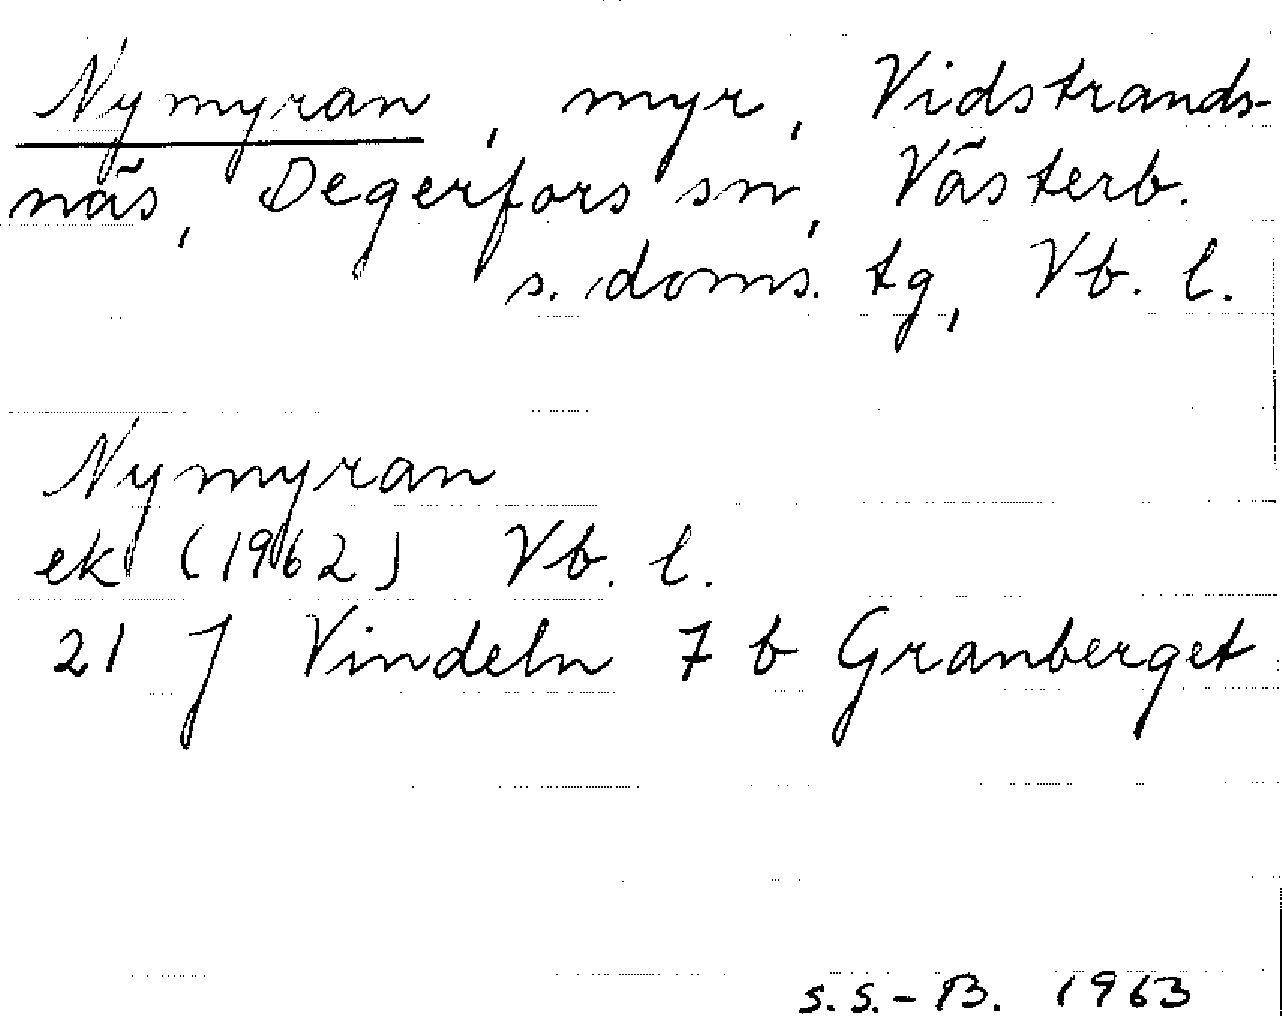 Nymyran, myr, Vidstrands-
näs, Degerfors sn, Västerb.
s. doms. tg, Vb. l.
Nymyran
ek (1962) Vb. l.
21 J Vindeln 7 b Granberget
S.S.-B. 1963